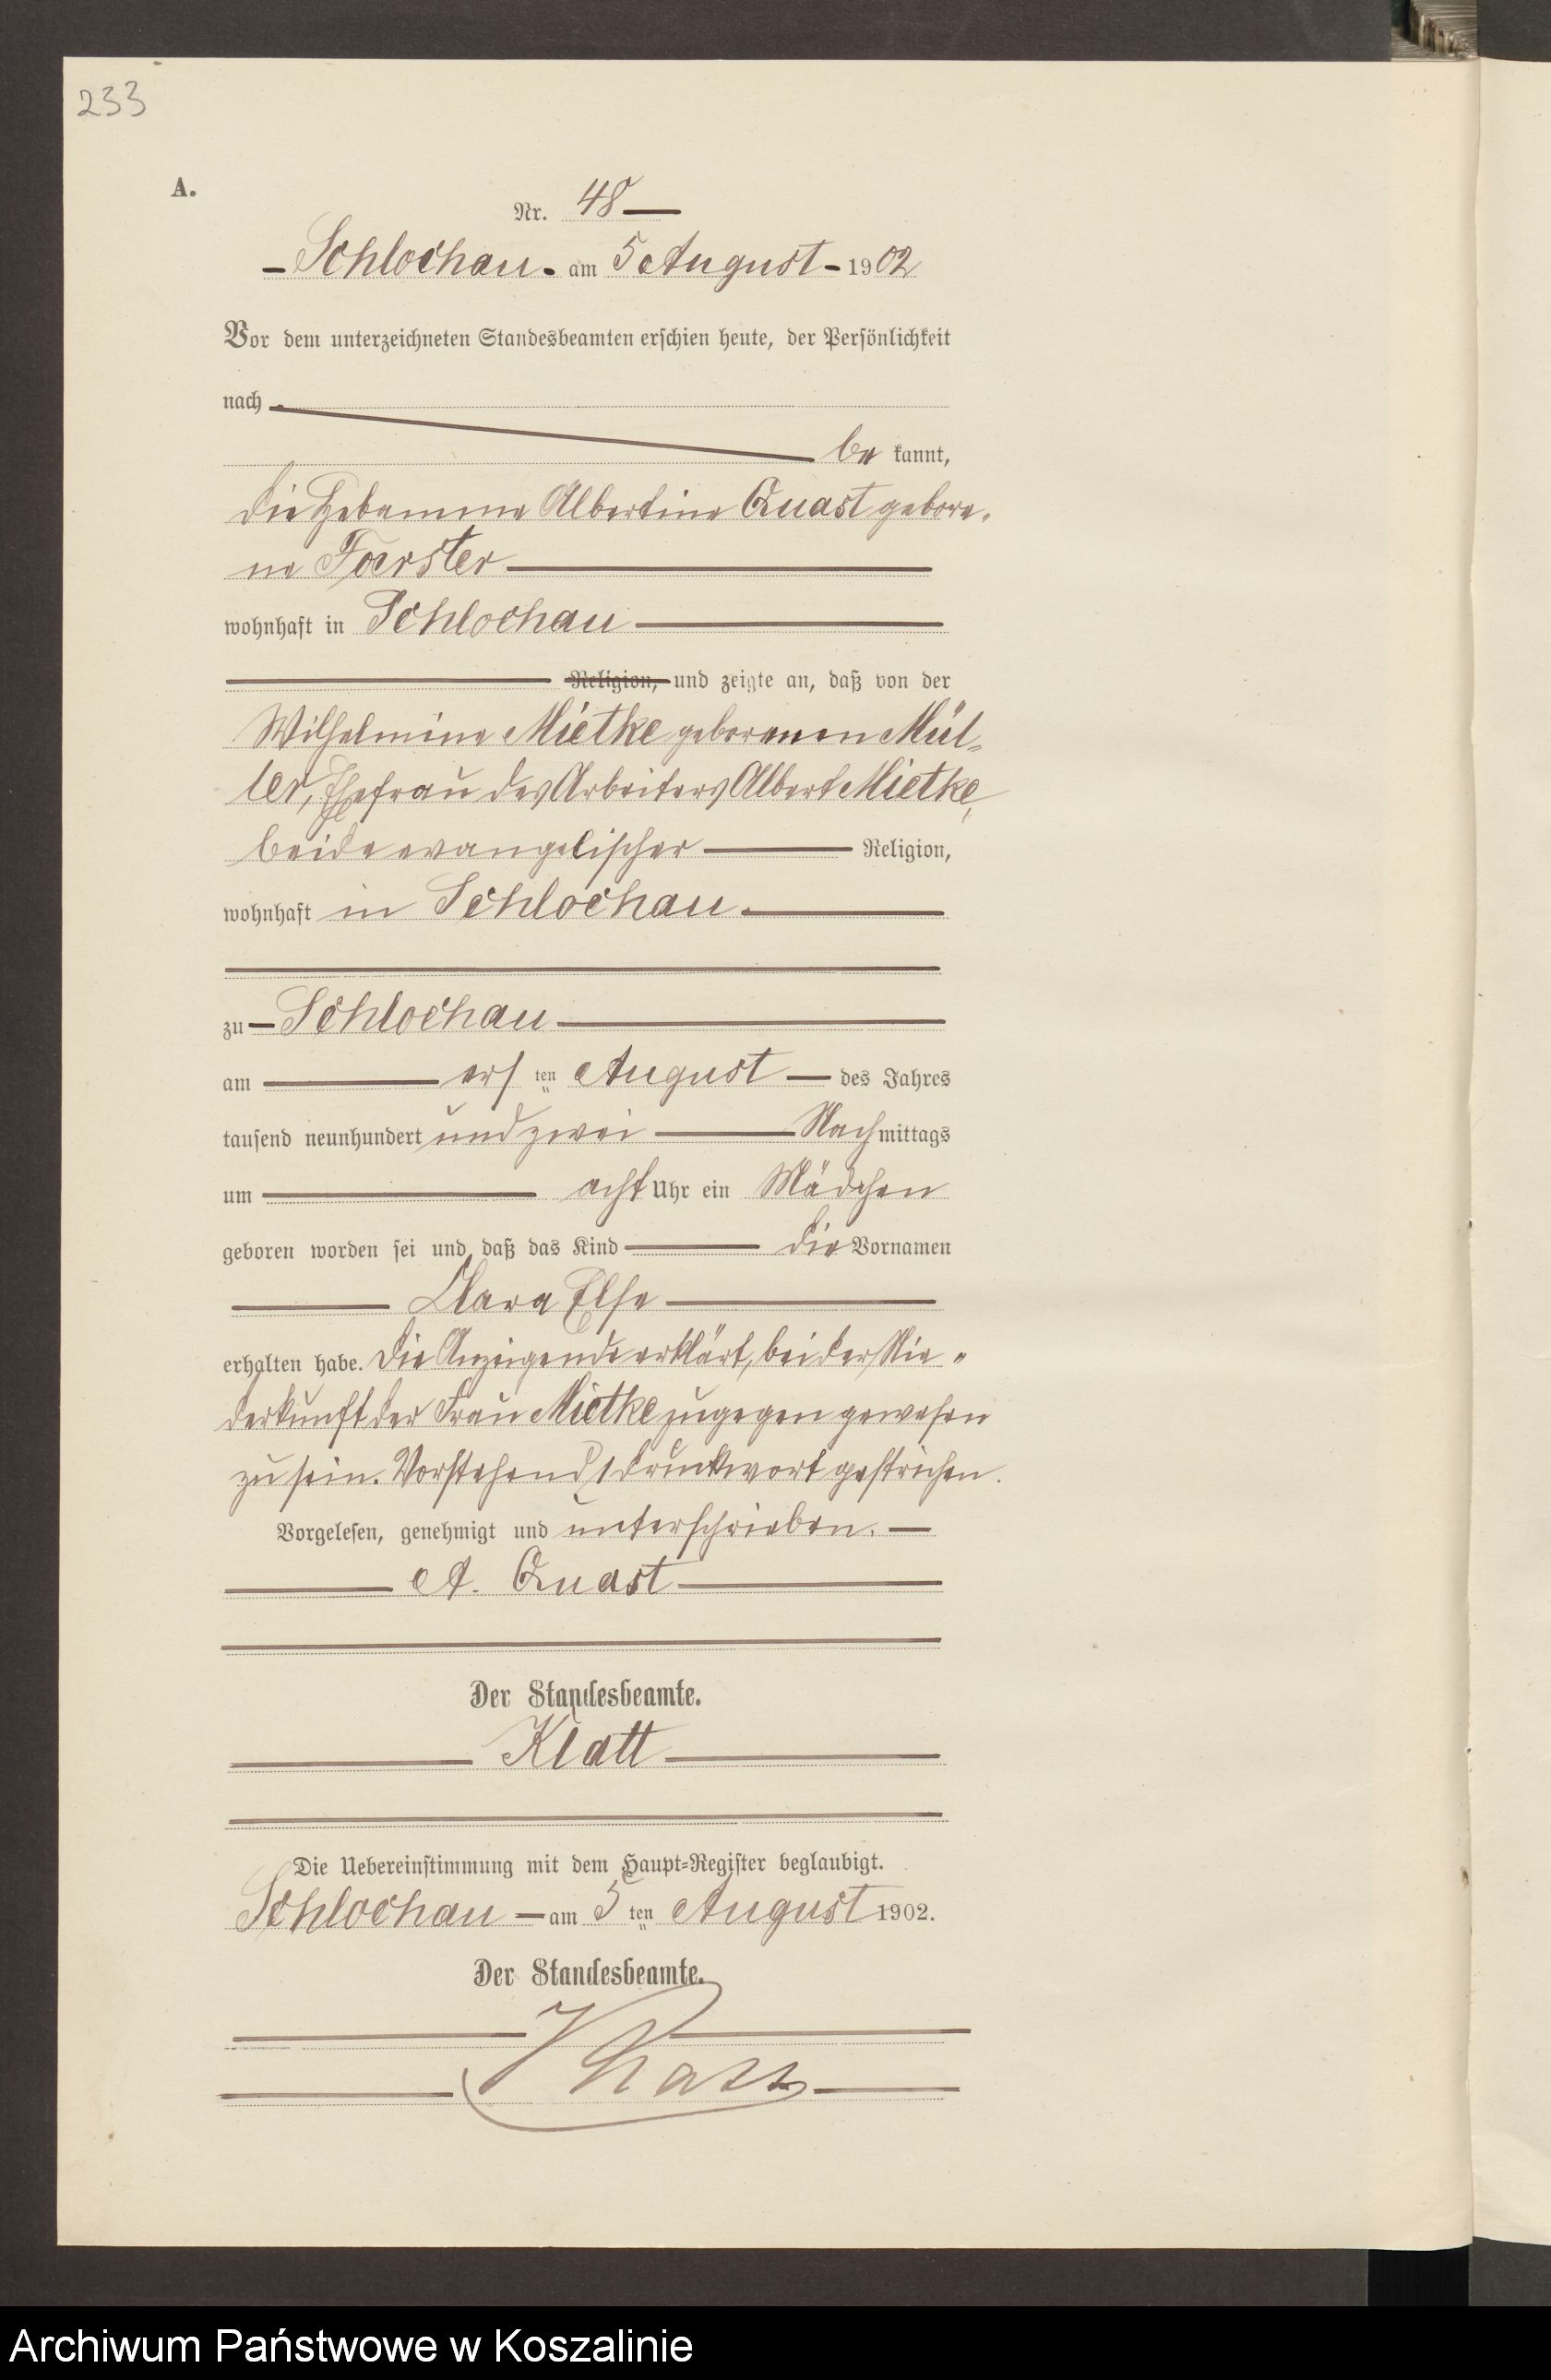 233
A.
Nr. 48
Schlochau am 5 August 1902
Vor dem unterzeichneten Standesbeamten erschien heute, der Persönlichkeit
nach
be kannt,
die Hebamme Albertine Quast gebore-
ne Foerster
wohnhaft in Schlochau
Religion, und zeigte an, daß von der
Wilhelmine Mietke geborenen Mül-
ler, Ehefrau des Arbeiters Albert Mietke,
beide evangelischer Religion,
wohnhaft in Schlochau
zu Schlochau
am ersten August des Jahres
tausend neunhundert und zwei Nachmittags
um acht Uhr ein Mädchen
geboren worden sei und daß das Kind die Vornamen
Clara Else
erhalten habe. Die Anzeigende erklärt, bei der Nie-
derkunft der Frau Mietke zugegen gewesen
zu sein. Vorstehend 1 Druckwort gestrichen.
Vorgelesen, genehmigt und unterschrieben.
A. Quast
Der Standesbeamte.
Klatt
Die Uebereinstimmung mit dem Haupt-Register beglaubigt.
Schlochau am 5ten August 1902.
Der Standesbeamte.
Klatt
Archiwum Państwowe w Koszalinie